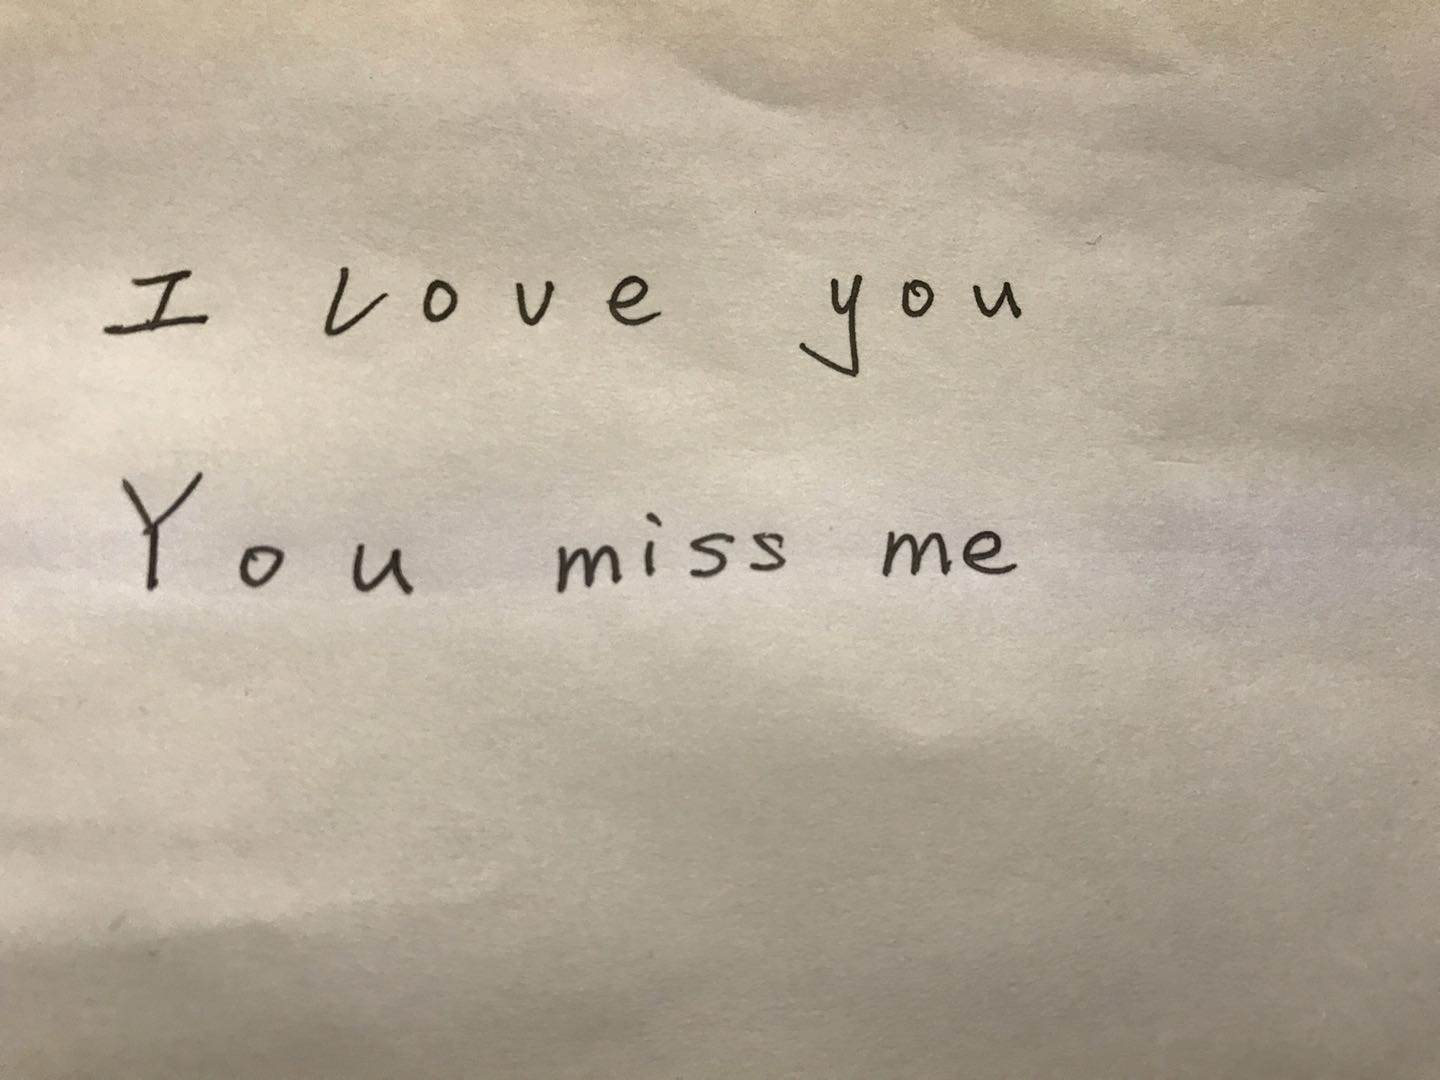 I Love you
You miss me